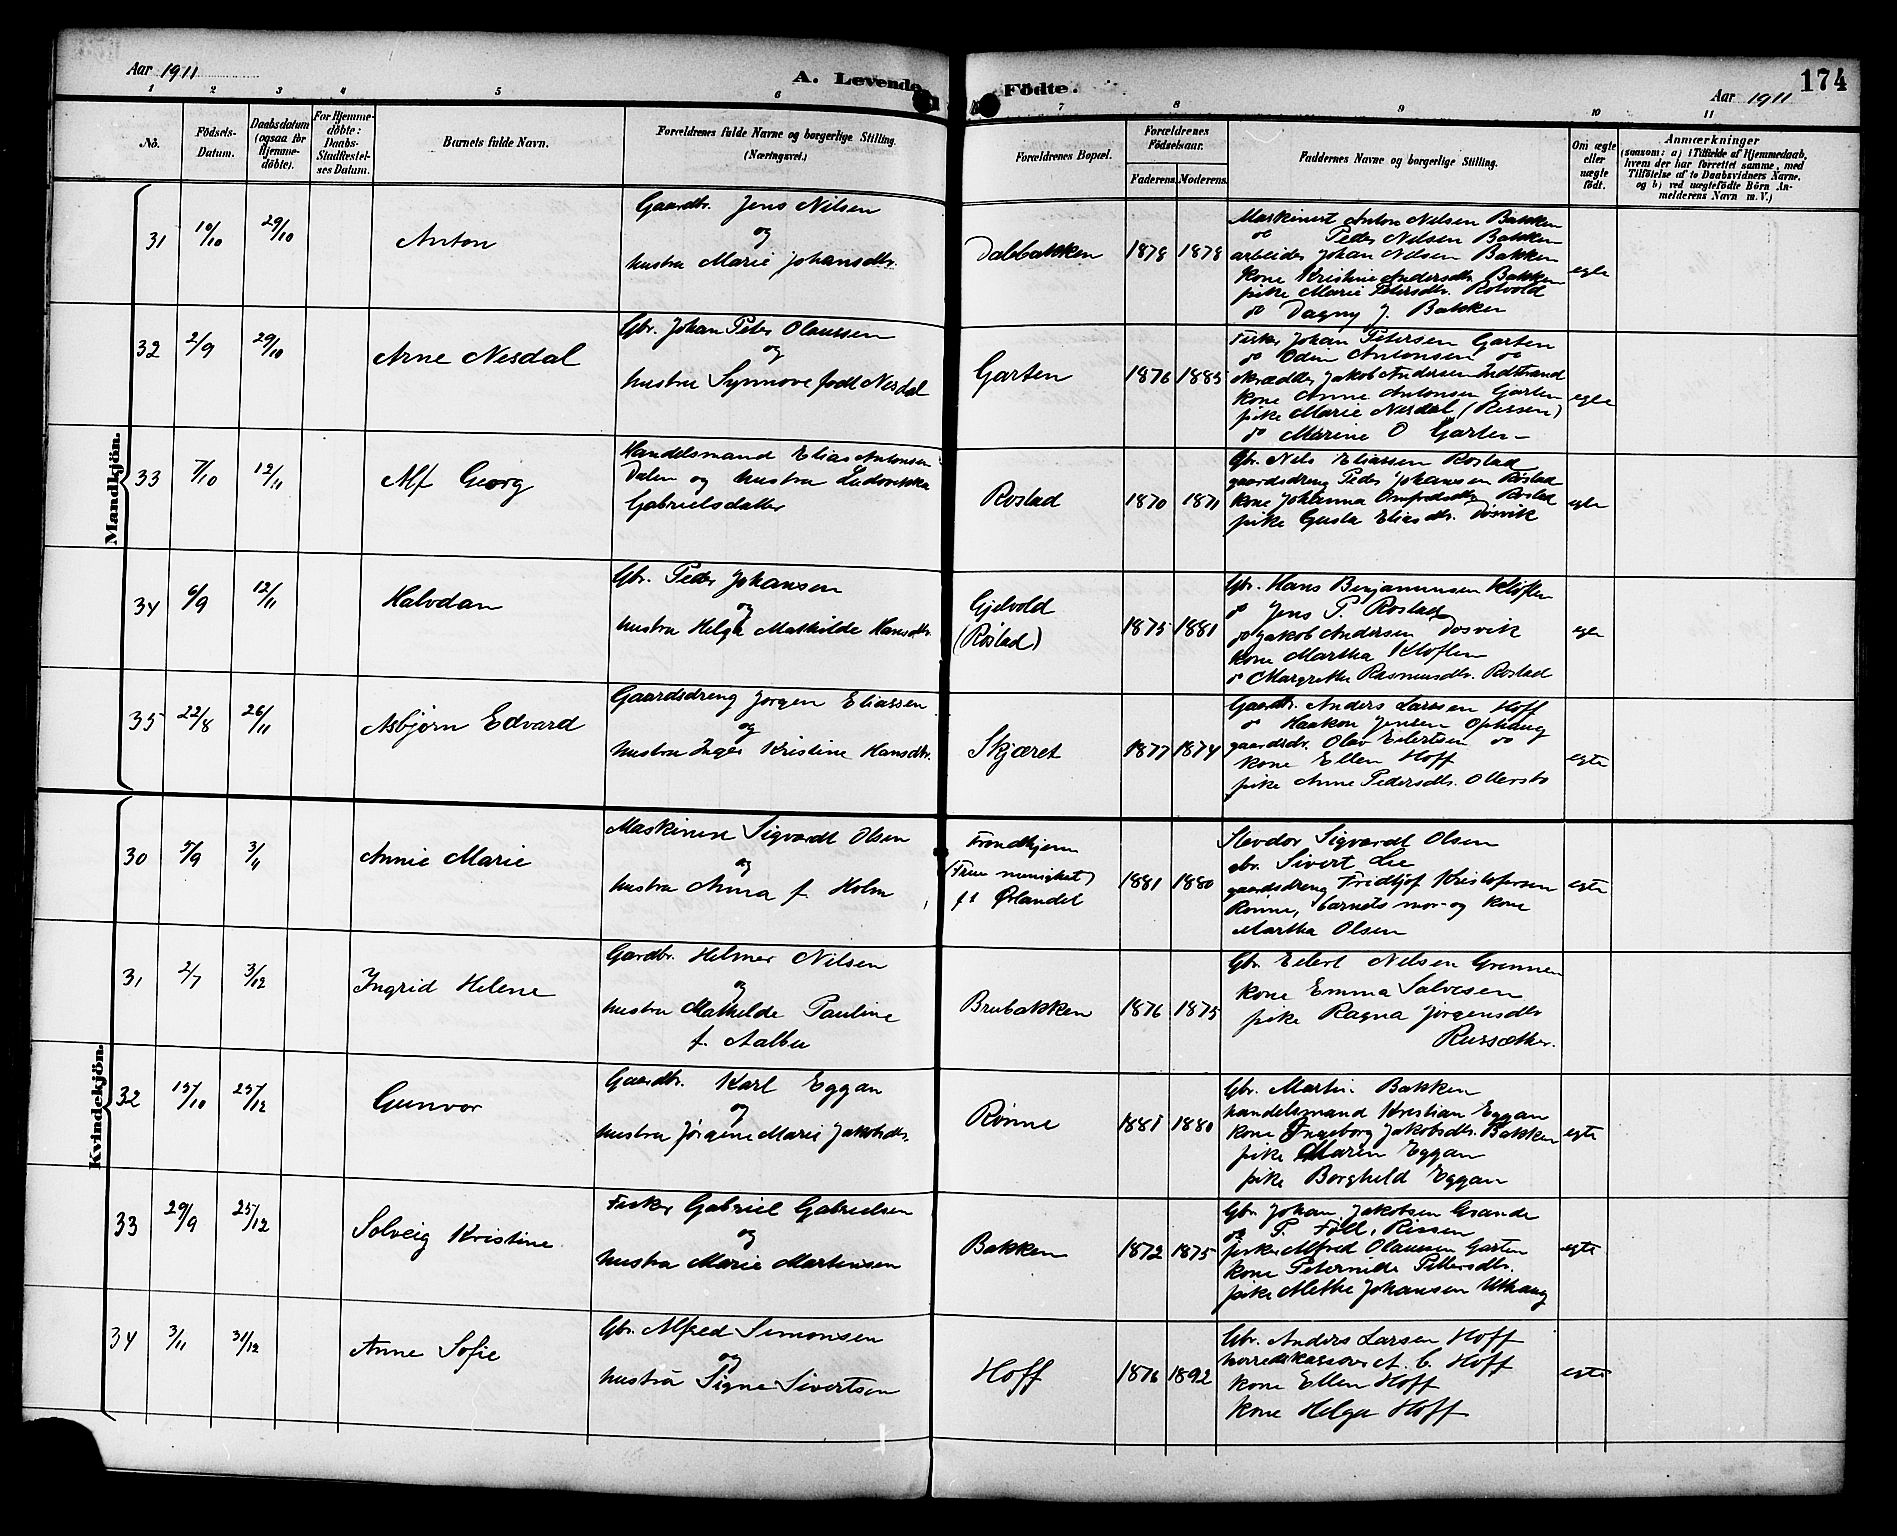 Aar 1911
A. Levende Födte.
Aar 1911
174
1 2 3 4 5 6 7 8 9 10 11
No.
Födsels-Datum.
Daabsdatum (ogsaa for Hjemme-döbte).
For Hjemme-döbte: Daabs-Stadfæstel-ses Datum.
Barnets fulde Navn.
Forældrenes fulde Navne og borgerlige Stilling.
(Næringsvei.)
Forældrenes Bopæl.
Forældrenes Födselsaar.
Faderens. Moderens.
Faddernes Navne og borgerlige Stilling.
Om ægte eller uægte födt.
Anmærkninger
(saasom: a) i Tilfælde af Hjemmedaab,
hvem der har forrettet samme, med
Tilföielse af to Daabsvidners Navne,
og b) ved uægtefödte Börn An-
melderens Navn m. V.)
Mandkjön.
31 10/10 29/10 Anton
Gaardbr. Jens Nilsen
og
hustru Marie Johansdtr.
Dalbakken 1878 1878
Maskinist Anton Nilsen Bakken
do Peder Nilsen Bakken
arbeider Johan Nilsen Bakken
kone Kristine Andersdtr. Bakken
pike Marie Petersdtr. Rotvold
do Dagny J. Bakken
egte
32 2/9 29/10 Arne Nesdal
Gbr. Johan Peter Olaussen
og
hustru Synnove født Nesdal
Garten 1876 1885
Fisker Johan Petersen Garten
do Odin Antonsen do
skrædder Jakob Andersen Indstrand
kone Anne Antonsen Garten
pike Marie Nesdal (Rissen)
do Marine O Garten
egte
33 7/10 12/11 Alf Georg
Handelsmand Elias Antonsen
Dalen og hustru Ludovikka
Gabrielsdatter
Rostad 1870 1871
Gbr. Nels Eliassen Rostad
gaardsdreng Peder Johansen Rostad
kone Johanna Rostad
pike Gusta Eliasdtr. Døsvik
egte
34 6/9 12/11 Halvdan
Gbr. Peder Johansen
og
hustru Helga Mathilde Hansdtr.
Gjelvold
(Røstad) 1875 1881
Gbr. Hans Benjaminsen Kloften
do Jens P. Rostad
do Jakob Andersen Døsvik
kone Martha Kloften
do Margrethe Rasmusdtr. Rostad
egte
35 22/8 26/11 Asbjørn Edvard
Gaardsdreng Jørgen Eliassen
og
hustru Inger Kristine Hansdtr.
Skjæret 1877 1874
Gaardbr. Anders Larssen Hoff
do Haakon Jensen Ophaug
gaardsdr. Olav Eilertsen do
kone Ellen Hoff
pike Anne Pedersdtr. Ottersbo
egte
Kvindekjön.
30 5/9 3/4 Annie Marie
Maskinist Sigvardt Olsen
og
hustru Anna f. Holm
Trondhjem
(Frue menighet)
f. t. Ørlandet 1881 1880
Sigvardt Olsen
gbr. Sivert Lie
gaardsdreng Fridtjof Kristofersen
Rønne, barnets mor og kone
Martha Olsen
egte
31 2/7 3/12 Ingrid Helene
Gardbr. Helmer Nilsen
og
hustru Mathilde Pauline
f. Aalbu
Brubakken 1876 1875
Gbr. Eilert Nilsen Grønnen
kone Emma Salvesen
pike Ragna Jørgensdtr
Russæther.
32 15/10 25/12 Gunvor
Gaardbr. Karl Eggan
og
hustru Jørgine Marie Jakobsdtr.
Rønne 1881 1880
Gbr. Martin Bakken
handelsmand Kristian Eggan
kone Ingeborg Jakobsdtr. Bakken
pike Maren Eggan
pike Borghild Eggan
egte
33 29/9 25/12 Solveig Kristine
Fisker Gabriel Gabrielsen
og
hustru Marie Martinsen
Bakken 1872 1875
Gbr. Johan Jakobsen Grande
do P. Foll, Rissen
fisker Alfred Olaussen Garten
kone Peternide Pettersdtr.
pike Methe Johansen Uthaug
egte
34 3/11 31/12 Anne Sofie
Gbr. Alfred Simonsen
og
hustru Signe Sivertsen
Hoff 1876 1892
Gbr. Anders Larsen Hoff
herredskasserer A. C. Hoff
kone Ellen Hoff
kone Helga Hoff
egte